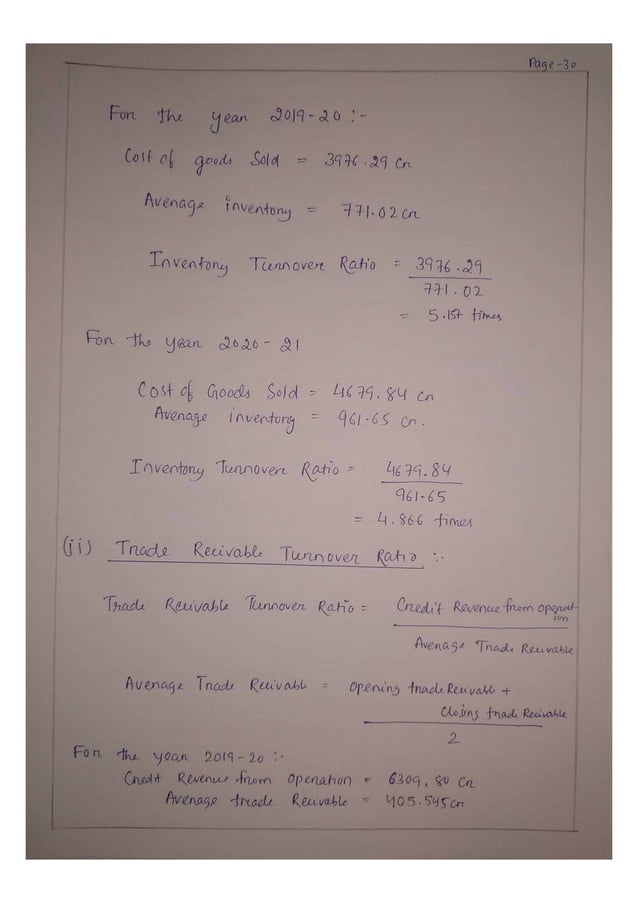 Page-30
For the year 2019-20 :-
Cost of goods Sold = 3976.29 Cr
Average inventory = 771.02 Cr
Inventory Turnover Ratio = 3976.29
771.02
= 5.157 times
For the year 2020-21
Cost of Goods Sold = 4679.84 Cr
Average inventory = 961.65 Cr.
Inventory Turnover Ratio = 4679.84
961.65
= 4.866 times
(ii) Trade Recivable Turnover Ratio :-
Trade Recivable Turnover Ratio = Credit Revenue from operat-
ion
Average Trade Recivable
Average Trade Recivable = opening trade Recivable +
Closing trade Recivable
2
For the year 2019-20 :-
Credit Revenue from Operation = 6309.80 Cr
Average trade Recivable = 405.545 Cr